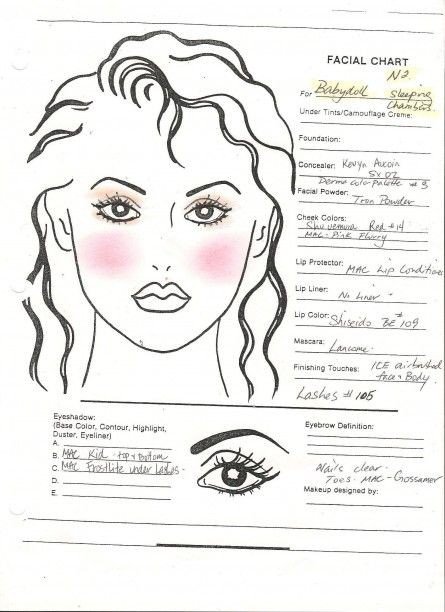 FACIAL CHART
N2
For Babydoll Sleeping
Chambers
Under Tints/Camouflage Creme:
Foundation:
Concealer: Kevyn Aucoin
SX 02
Dermacolor palette # 3
Facial Powder: Tran Powder
Cheek Colors:
Shu uemura Red #14
MAC - Pink Flurry
Lip Protector: MAC Lip Conditioner
Lip Liner: No Liner -
Lip Color: Shiseido BE 109
Mascara: Lancome -
Finishing Touches: ICE airbrushed
face + Body
Lashes # 105
Eyeshadow:
(Base Color, Contour, Highlight,
Duster, Eyeliner)
A.
B. MAC Kid - top + Bottom
C. MAC Frostlite under Lashes -
D.
E.
Eyebrow Definition:
Nails clear -
Toes - MAC - Gossamer
Makeup designed by: